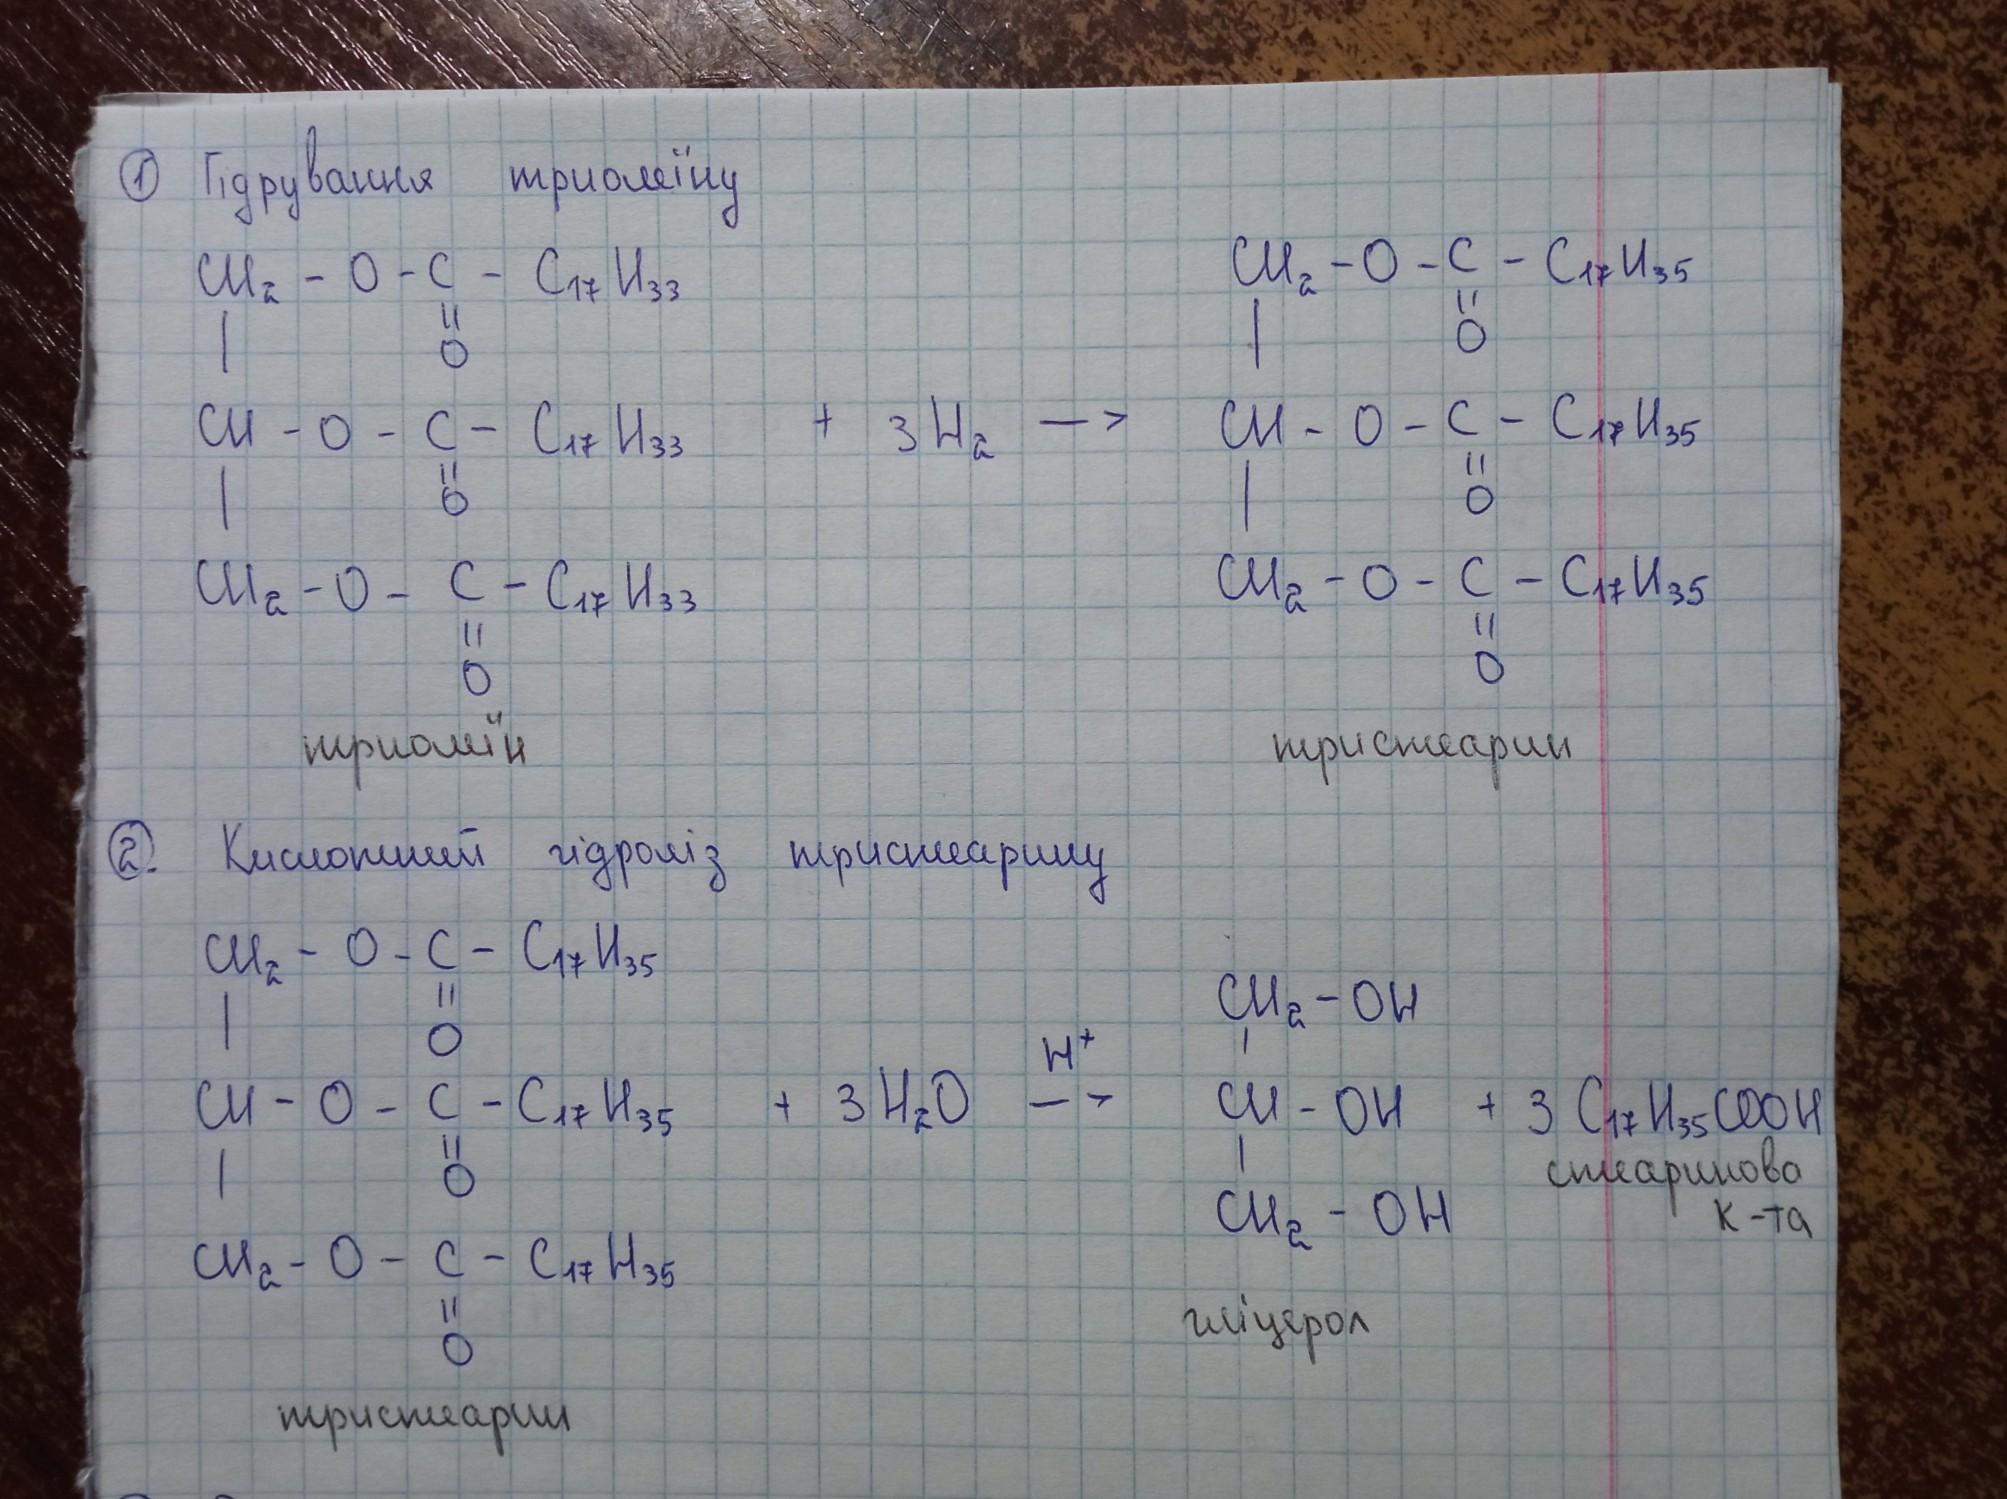 ① Гідрування триолеїну
CH₂ – O – C – C₁₇H₃₃
||
O
CH – O – C – C₁₇H₃₃
||
O
CH₂ – O – C – C₁₇H₃₃
||
O
+ 3H₂ —>
CH₂ – O – C – C₁₇H₃₅
||
O
CH – O – C – C₁₇H₃₅
||
O
CH₂ – O – C – C₁₇H₃₅
||
O
триолеїн
тристеарин
②. Кислотний гідроліз тристеарину
CH₂ – O – C – C₁₇H₃₅
||
O
CH – O – C – C₁₇H₃₅
||
O
CH₂ – O – C – C₁₇H₃₅
||
O
+ 3H₂O —>
H⁺
CH₂ – OH
CH – OH
CH₂ – OH
+ 3 C₁₇H₃₅COOH
стеаринова
к-та
гліцерол
тристеарин